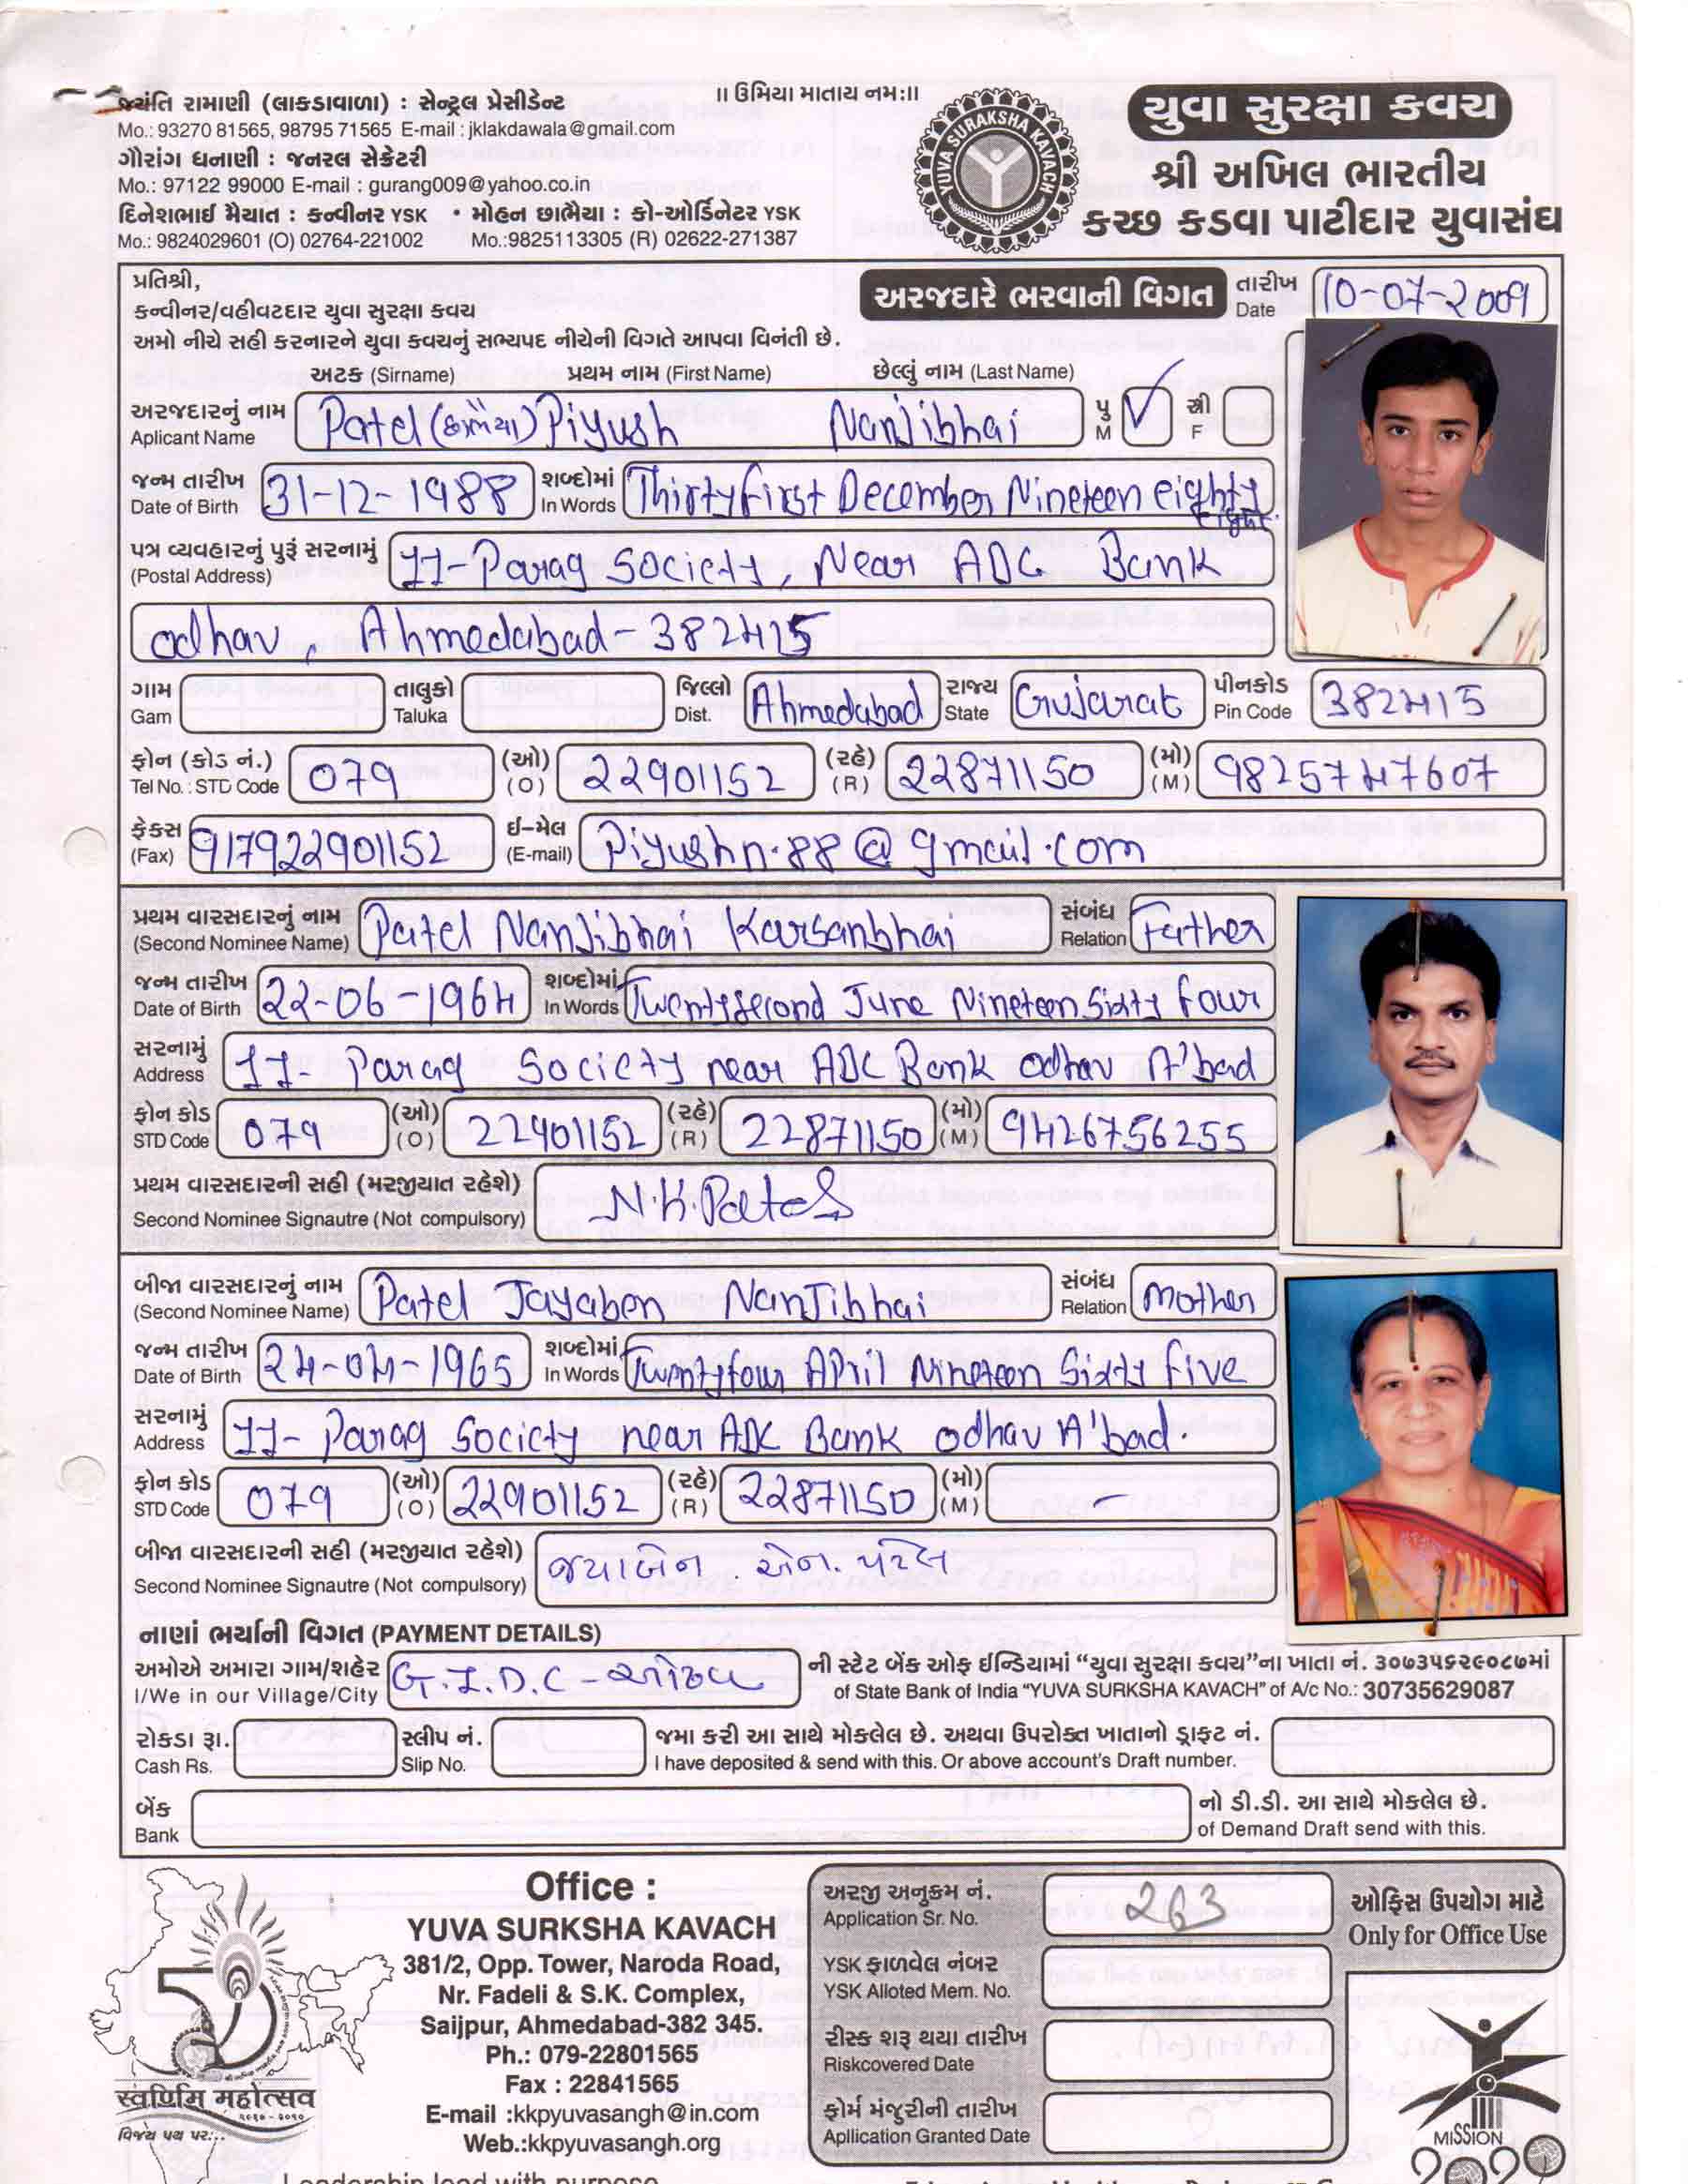 ॥ ઉમિયા માતાય નમ:॥
જયંતિ રામાણી (લાકડાવાળા) : સેન્ટ્રલ પ્રેસીડેન્ટ
Mo.: 93270 81565, 98795 71565 E-mail : jklakdawala@gmail.com
ગૌરાંગ ધનાણી : જનરલ સેક્રેટરી
Mo.: 97122 99000 E-mail : gurang009@yahoo.co.in
દિનેશભાઈ મૈયાત : કન્વીનર YSK • મોહન છાભૈયા : કો-ઓર્ડિનેટર YSK
Mo.: 9824029601 (O) 02764-221002 Mo.:9825113305 (R) 02622-271387
YUVA SURAKSHA KAVACH
યુવા સુરક્ષા કવચ
શ્રી અખિલ ભારતીય
કચ્છ કડવા પાટીદાર યુવાસંઘ
પ્રતિશ્રી,
અરજદારે ભરવાની વિગત તારીખ Date 10-07-2009
કન્વીનર/વહીવટદાર યુવા સુરક્ષા કવચ
અમો નીચે સહી કરનારને યુવા કવચનું સભ્યપદ નીચેની વિગતે આપવા વિનંતી છે.
અટક (Sirname) પ્રથમ નામ (First Name) છેલ્લું નામ (Last Name)
અરજદારનું નામ Aplicant Name Patel Piyush Nanjibhai પુ M ✓ સ્ત્રી F
જન્મ તારીખ Date of Birth 31-12-1988 શબ્દોમાં In Words Thirtyfirst December Nineteen eighty eight.
પત્ર વ્યવહારનું પુરૂં સરનામું (Postal Address) 11-Parag Society, Near ADC Bank
odhav, Ahmedabad-382415
ગામ Gam તાલુકો Taluka જિલ્લો Dist. Ahmedabad રાજ્ય State Gujarat પીનકોડ Pin Code 382415
ફોન (કોડ નં.) Tel No. : STD Code 079 (ઓ) (O) 22901152 (રહે) (R) 22871150 (મો) (M) 9825747607
ફેક્સ (Fax) 917922901152 ઈ-મેલ (E-mail) Piyushn.88@gmail.com
પ્રથમ વારસદારનું નામ (Second Nominee Name) Patel Nanjibhai Karsanbhai સંબંધ Relation Father
જન્મ તારીખ Date of Birth 22-06-1964 શબ્દોમાં In Words Twentysecond June Nineteen Sixty four
સરનામું Address 11- Parag Society near ADC Bank odhav A'bad
ફોન કોડ STD Code 079 (ઓ) (O) 22901152 (રહે) (R) 22871150 (મો) (M) 9426756255
પ્રથમ વારસદારની સહી (મરજીયાત રહેશે)
Second Nominee Signautre (Not compulsory) N.K.Patel
બીજા વારસદારનું નામ (Second Nominee Name) Patel Jayaben Nanjibhai સંબંધ Relation mother
જન્મ તારીખ Date of Birth 24-04-1965 શબ્દોમાં In Words Twentyfour April Nineteen Sixty five
સરનામું Address 11- Parag Society near ADC Bank odhav A'bad.
ફોન કોડ STD Code 079 (ઓ) (O) 22901152 (રહે) (R) 22871150 (મો) (M) -
બીજા વારસદારની સહી (મરજીયાત રહેશે)
Second Nominee Signautre (Not compulsory) જયાબેન . એન. પટેલ
નાણાં ભર્યાની વિગત (PAYMENT DETAILS)
અમોએ અમારા ગામ/શહેર G.I.D.C - ઓઢવ ની સ્ટેટ બેંક ઓફ ઈન્ડિયામાં “યુવા સુરક્ષા કવચ”ના ખાતા નં. ૩૦૭૩૫૬૨૯૦૮૭માં
I/We in our Village/City of State Bank of India “YUVA SURKSHA KAVACH” of A/c No.: 30735629087
રોકડા રૂા. સ્લીપ નં. જમા કરી આ સાથે મોકલેલ છે. અથવા ઉપરોક્ત ખાતાનો ડ્રાફ્ટ નં.
Cash Rs. Slip No. I have deposited & send with this. Or above account's Draft number.
બેંક નો ડી.ડી. આ સાથે મોકલેલ છે.
Bank of Demand Draft send with this.
Office :
YUVA SURKSHA KAVACH
381/2, Opp. Tower, Naroda Road,
Nr. Fadeli & S.K. Complex,
Saijpur, Ahmedabad-382 345.
Ph.: 079-22801565
Fax : 22841565
E-mail :kkpyuvasangh@in.com
Web.:kkpyuvasangh.org
અરજી અનુક્રમ નં. 263 ઓફિસ ઉપયોગ માટે
Application Sr. No. Only for Office Use
YSK ફાળવેલ નંબર
YSK Alloted Mem. No.
રીસ્ક શરૂ થયા તારીખ
Riskcovered Date
ફોર્મ મંજુરીની તારીખ
Apllication Granted Date
स्वर्णिम महोत्सव
૨૦૧૦ - ૨૦૧૦
વિજય પથ પર...
MISSION
2020